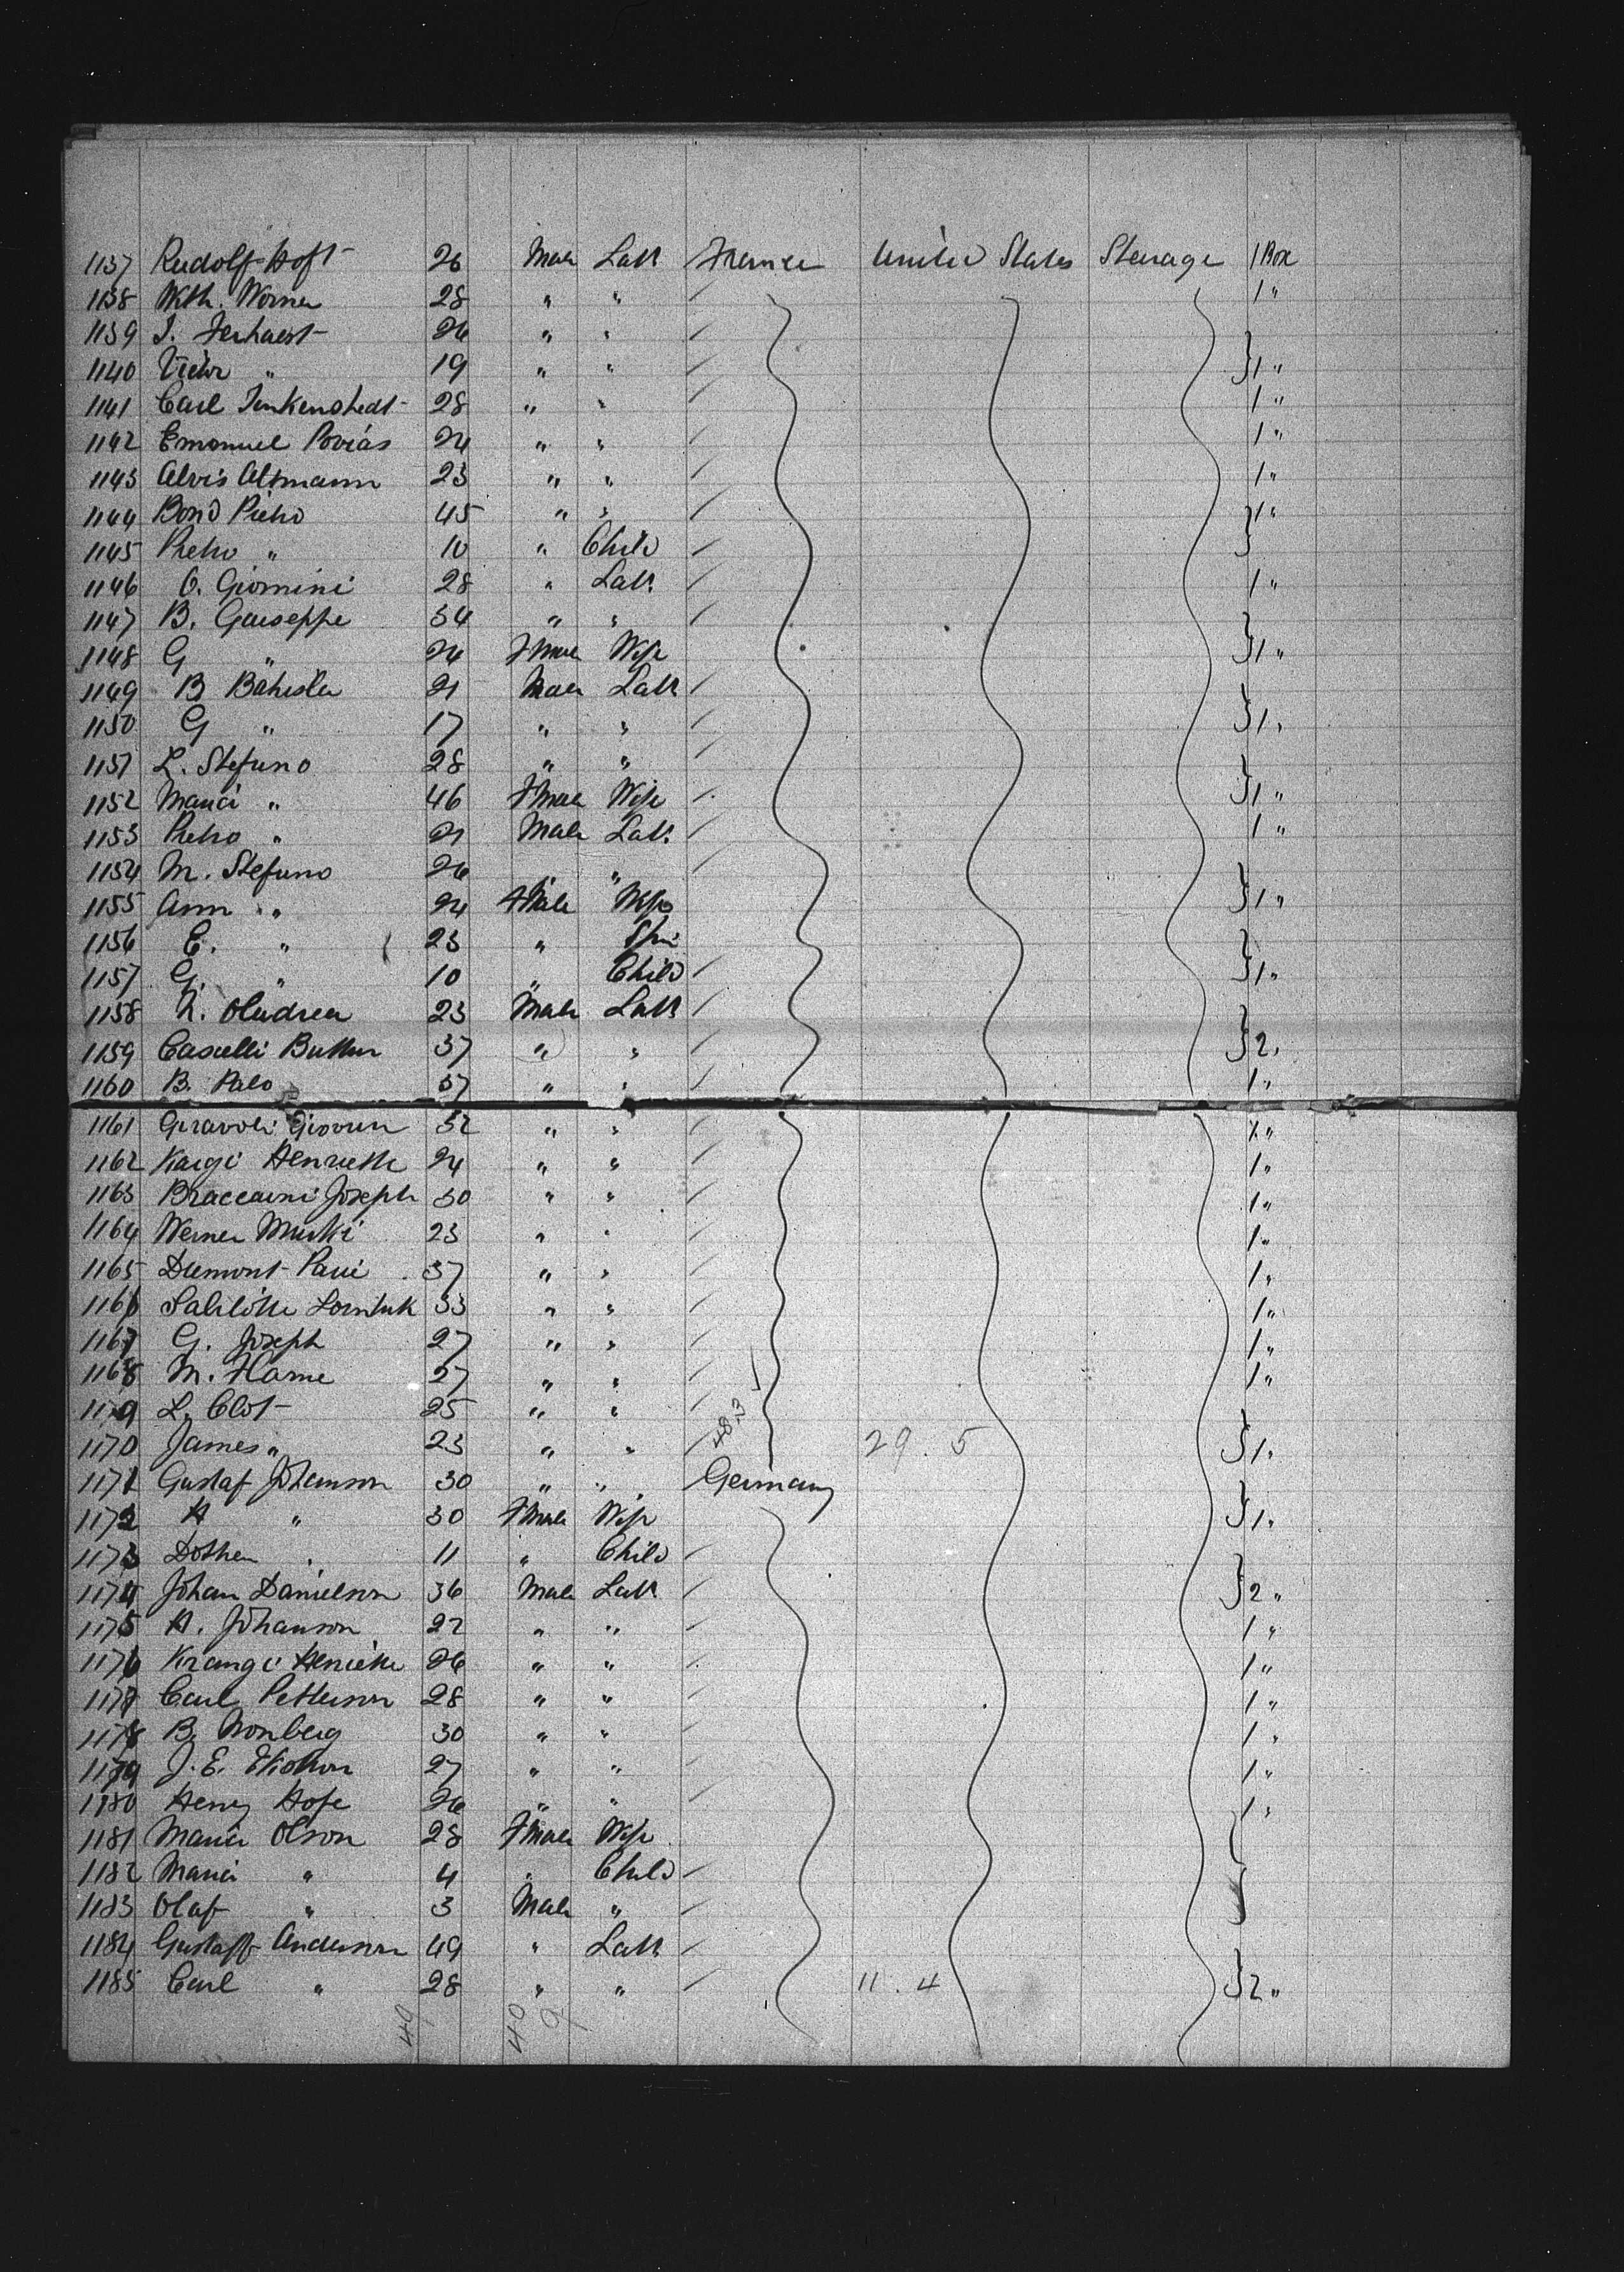 1137 Rudolf Hoft 26 Male Labr France United States Steerage 1 Box
1138 Wth. Werner 28 " " 1 "
1139 J. Ferhaest 26 " "
1140 Victor " 19 " " } 1 "
1141 Carl Tenkenshedt 28 " " 1 "
1142 Emanuel Povias 24 " " 1 "
1143 Alvis Altmann 23 " " 1 "
1144 Bono Pietro 45 " " 1 "
1145 Pietro " 10 " Child }
1146 O. Giomini 28 " Labr 1 "
1147 B. Guiseppe 34 " "
1148 G " 24 Fmale Wife } 1 "
1149 B Batrista 21 Male Labr
1150 G " 17 " " } 1 "
1151 L. Stefuno 28 " "
1152 Maria " 46 Fmale Wife } 1 "
1153 Pietro " 21 Male Labr 1 "
1154 M. Stefuno 26 " "
1155 Ann " 24 Fmale Wife } 1 "
1156 C. " 23 " Spi
1157 G. " 10 " Child } 1 "
1158 N. Andrea 23 Male Labr
1159 Caselli 37 " " } 2 "
1160 B. Palo 37 " " 1 "
1161 32 " " 1 "
1162 Kaigi Henriette 24 " " 1 "
1163 Braccaini Joseph 30 " " 1 "
1164 Werner 23 " " 1 "
1165 Dumont Paui 37 " " 1 "
1166 33 " " 1 "
1167 G. Joseph 27 " " 1 "
1168 M. Hame 27 " " 1 "
1169 L. Clot 25 " " 483
1170 James " 23 " " 29 . 5 } 1 "
1171 Gustaf Johanson 30 " " Germany
1172 H " 30 Fmale Wife } 1 "
1173 Dothea " 11 " Child
1174 Johan Danielson 36 Male Labr } 2 "
1175 H. Johanson 22 " " 1 "
1176 Krangi Henriette 26 " " 1 "
1177 Carl Petterson 28 " " 1 "
1178 B. Nonberg 30 " " 1 "
1179 J. E. 27 " " 1 "
1180 Henry Hofe 26 " " 1 "
1181 Maria Olson 28 Fmale Wife
1182 Maria " 4 " Child
1183 Olaf " 3 Male " }
1184 Gustaff Anderson 49 " Labr
1185 Carl " 28 " " 11 . 4 } 2 "
49 40 9